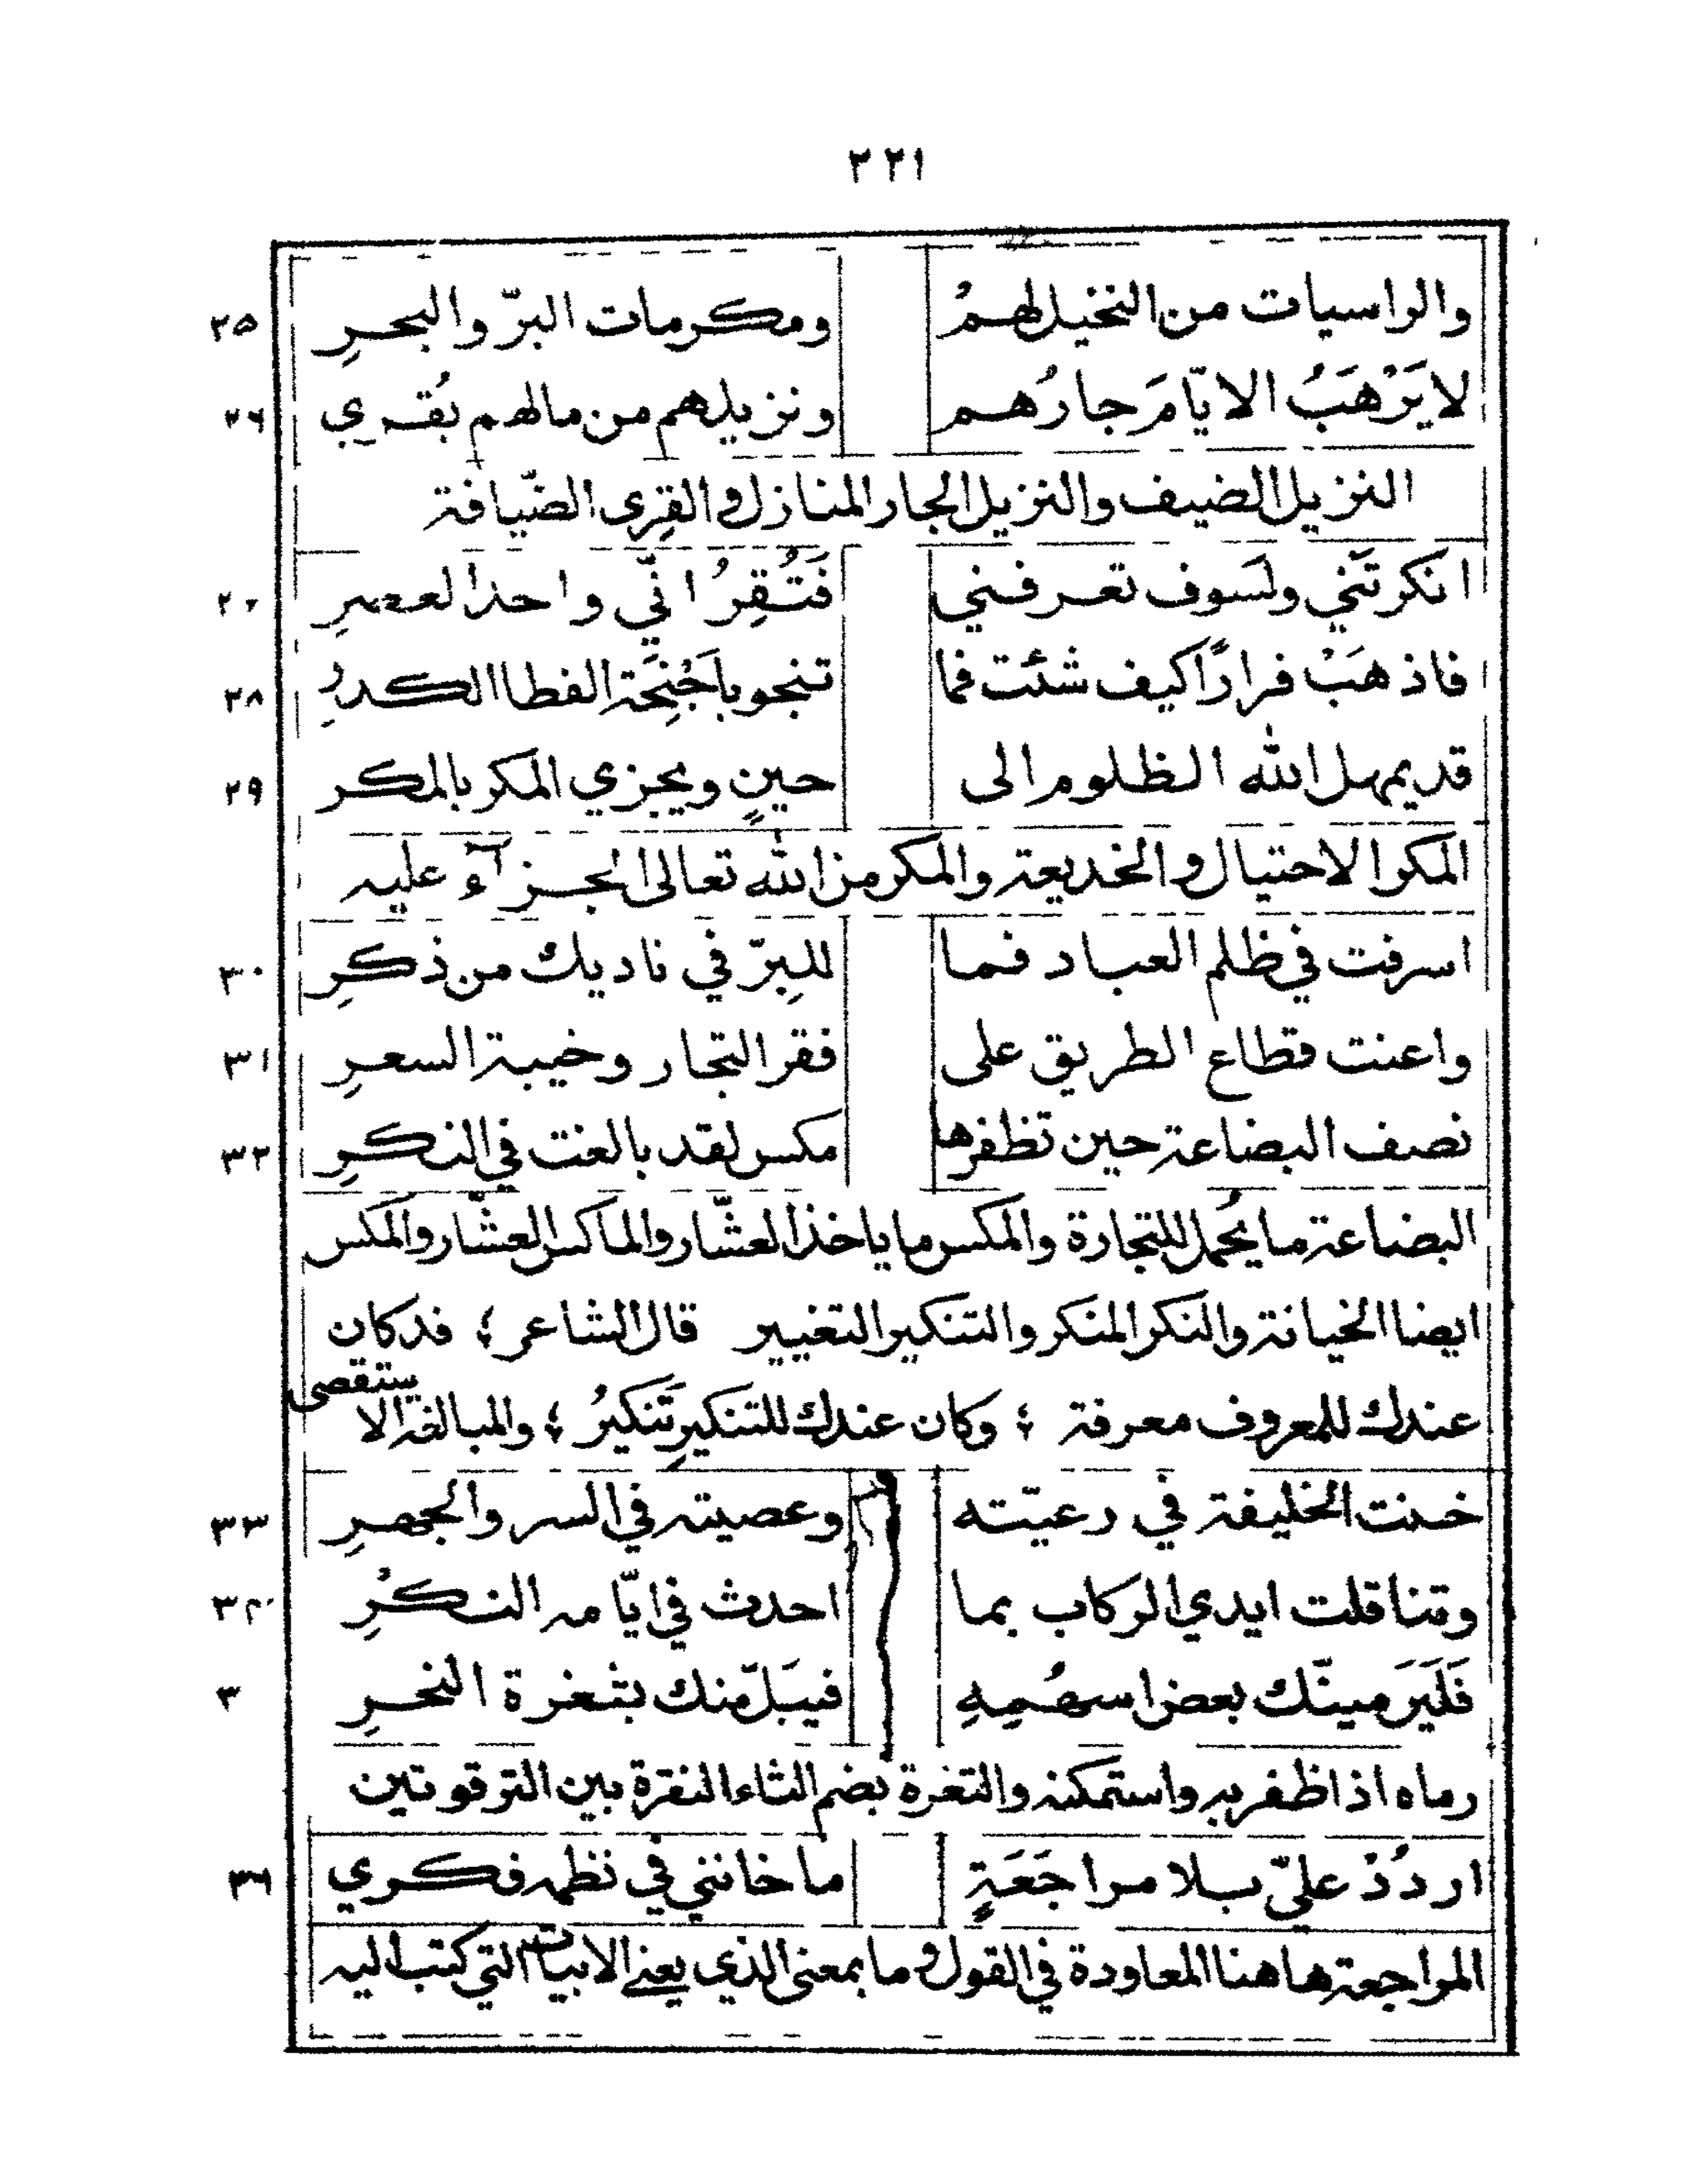 ٢٢١
والراسيات من النخيل لهمُ ومكرمات البرّ والبحرِ ٢٥
لا يَرْهَبُ الايّامَ جارُهم ونزيلهم من مالهم يُقري ٢٦
النزيل الضيف والنزيل الجار المنازل والقِرى الضّيافة
انكرتَني ولَسوف تعرفني فَتُقِرُ انّي واحد العصرِ
فاذهَبْ فرارًا كيف شئت فما تنجو باَجْنِحَة القطا الكدرِ ٢٨
قد يمهل الله الظلوم الى حينٍ ويجزي المكر بالمكر ٢٩
المكر الاحتيال والخديعة والمكر من الله تعالى الجزآء عليه
اسرفت في ظلم العباد فما للبِرّ في ناديك من ذكرِ ٣٠
واعنت قطاع الطريق على فقر التجار وخيبة السعرِ ٣١
نصف البضاعة حين تظفرها مكس لقد بالغت في النكرِ ٣٢
البضاعة ما يُحمل للتجارة والمكس ما ياخذ العشّار والماكس العشّار والمكس
ايضا الخيانة والنكر المنكر والتنكير التغيير قال الشاعر ؛ قد كان
عندك للمعروف معرفة ؛ وكان عندك للتنكيرِ تَنكيرُ ؛ والمبالغة الا
ستقصى
خنت الخليفة في رعيّته وعصيته في السر والجهرِ ٣٣
وتناقلت ايدي الركاب بما احدث في ايّامه النكْرِ ٣٤
فَلَيَرَمينّك بعض اسهُمِهِ فيبَلّ منك بثغرة النحرِ ٣
رماه اذا ظفر به واستمكنه والثغرة بضم الثاء النقرة بين الترقوتين
اردُدْ عليّ بلا مراجَعَةٍ ما خانني في نظمه فكري ٣٦
المراجعة هاهنا المعاودة في القول وما بمعنى الذي يعني الابيات التي كتب اليه